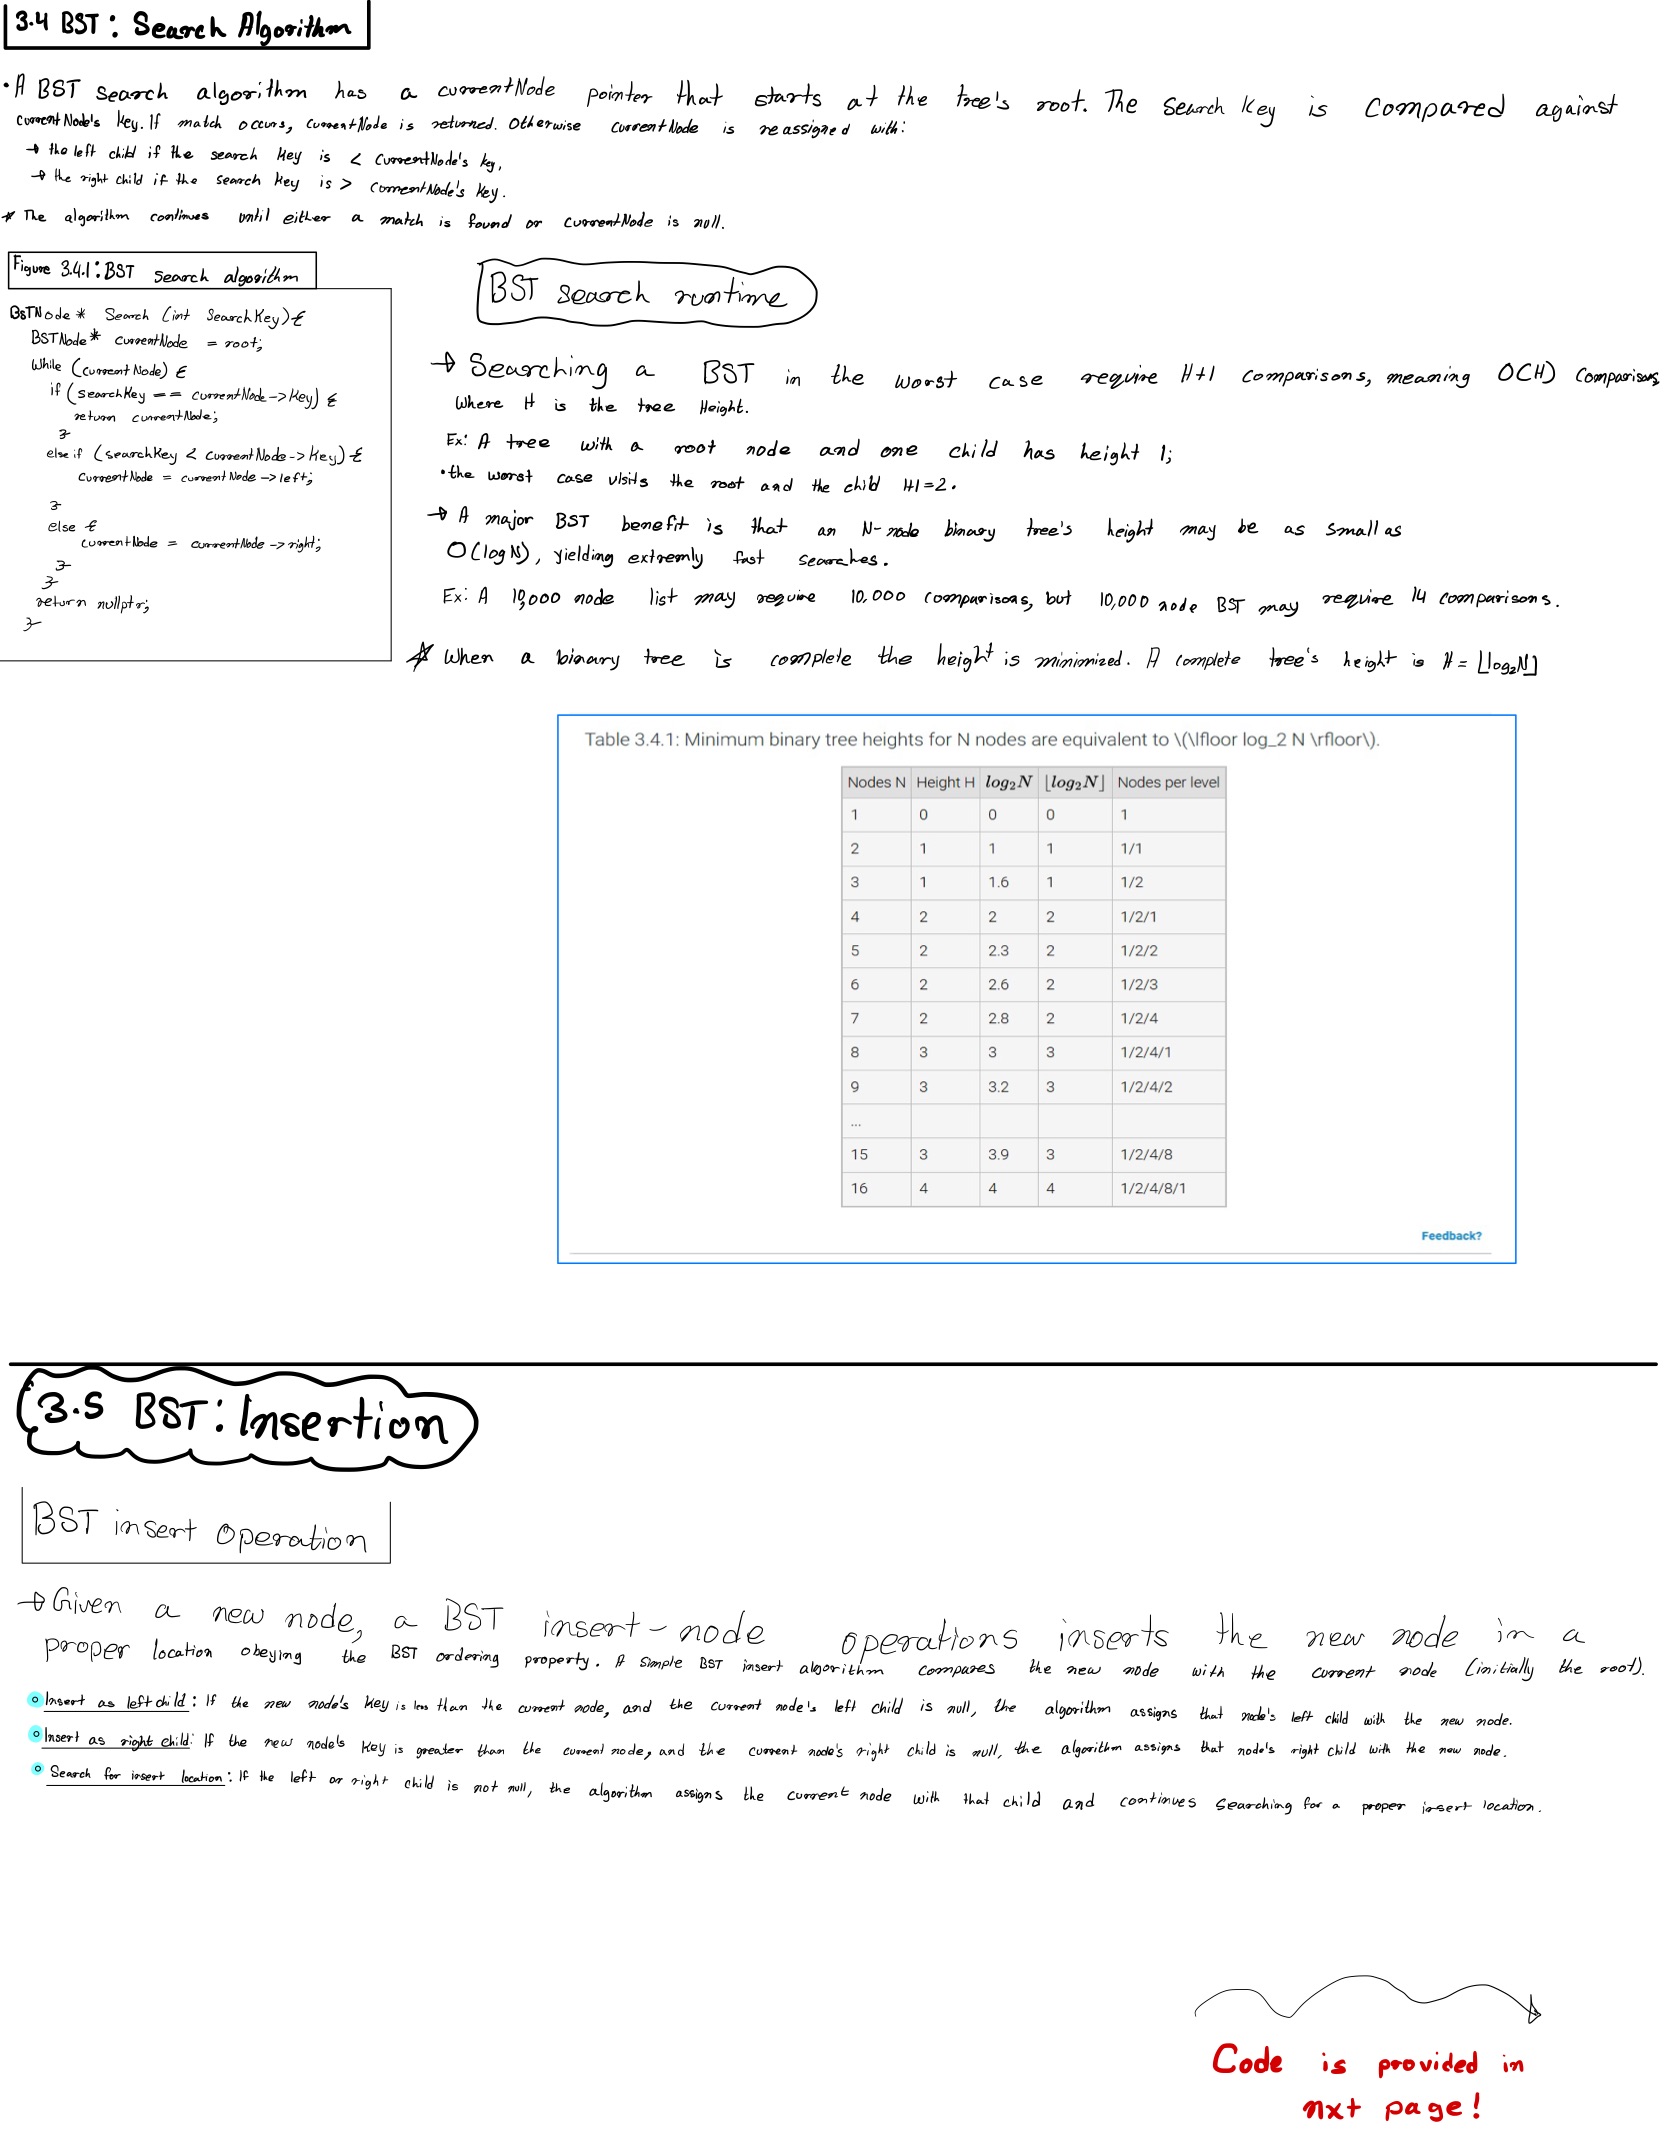 3.4 BST: Search Algorithm
• A BST search algorithm has a currentNode pointer that starts at the tree's root. The search key is compared against
currentNode's key. If match occurs, currentNode is returned. Otherwise currentNode is reassigned with:
→ the left child if the search key is < currentNode's key,
→ the right child if the search key is > currentNode's key.
* The algorithm continues until either a match is found or currentNode is null.
Figure 3.4.1: BST search algorithm
BSTNode* Search (int SearchKey) {
BSTNode* currentNode = root;
while (currentNode) {
if (searchKey == currentNode->key) {
return currentNode;
}
else if (searchKey < currentNode->key) {
currentNode = currentNode->left;
}
else {
currentNode = currentNode->right;
}
}
return nullptr;
}
BST search runtime
→ Searching a BST in the worst case require H+1 comparisons, meaning O(H) comparisons,
where H is the tree Height.
Ex: A tree with a root node and one child has height 1;
• the worst case visits the root and the child H1=2.
→ A major BST benefit is that an N-node binary tree's height may be as small as
O(log N), yielding extremly fast searches.
Ex: A 10,000 node list may require 10,000 comparisons, but 10,000 node BST may require 14 comparisons.
* When a binary tree is complete the height is minimized. A complete tree's height is H = ⌊log₂N⌋
Table 3.4.1: Minimum binary tree heights for N nodes are equivalent to \(\lfloor log_2 N \rfloor\).
Nodes N Height H log₂N ⌊log₂N⌋ Nodes per level
1 0 0 0 1
2 1 1 1 1/1
3 1 1.6 1 1/2
4 2 2 2 1/2/1
5 2 2.3 2 1/2/2
6 2 2.6 2 1/2/3
7 2 2.8 2 1/2/4
8 3 3 3 1/2/4/1
9 3 3.2 3 1/2/4/2
...
15 3 3.9 3 1/2/4/8
16 4 4 4 1/2/4/8/1
Feedback?
3.5 BST: Insertion
BST insert operation
→ Given a new node, a BST insert-node operations inserts the new node in a
proper location obeying the BST ordering property. A simple BST insert algorithm compares the new node with the current node (initially the root).
Insert as left child: If the new node's key is less than the current node, and the current node's left child is null, the algorithm assigns that node's left child with the new node.
Insert as right child: If the new node's key is greater than the current node, and the current node's right child is null, the algorithm assigns that node's right child with the new node.
Search for insert location: If the left or right child is not null, the algorithm assigns the current node with that child and continues searching for a proper insert location.
Code is provided in
nxt page!